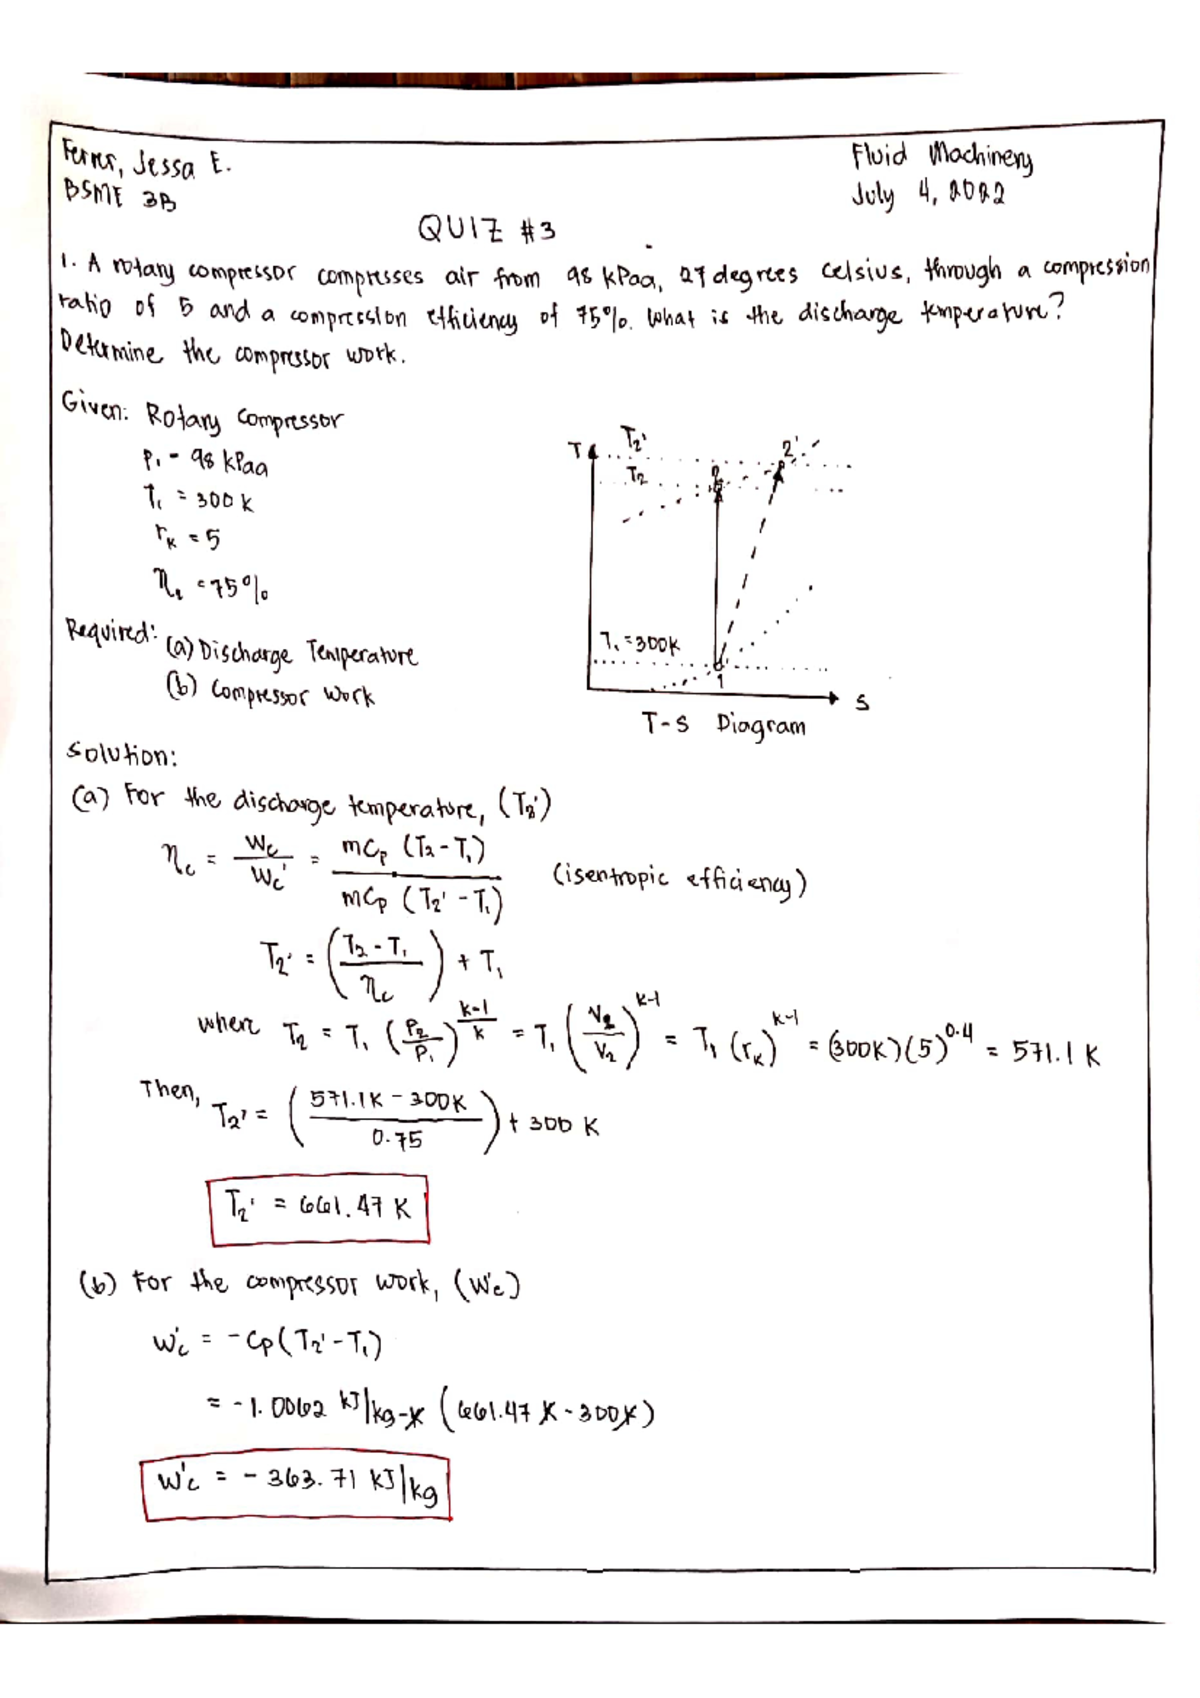 Ferrer, Jessa E.
BSME 3B
Fluid Machinery
July 4, 2022
QUIZ #3
1. A rotary compressor compresses air from 98 kPaa, 27 degrees celsius, through a compression
ratio of 5 and a compression efficiency of 75%. What is the discharge temperature?
Determine the compressor work.
Given: Rotary Compressor
P₁ = 98 kPaa
T₁ = 300 K
rₖ = 5
η꜀ = 75%
Required: (a) Discharge Temperature
(b) Compressor Work
T T₂'
T₂ 2 2'
T₁ = 300K
1
S
T-S Diagram
Solution:
(a) For the discharge temperature, (T₂')
η꜀ = Wc / Wc' = mCp (T₂ - T₁) / mCp (T₂' - T₁) (isentropic efficiency)
T₂' = (T₂ - T₁ / η꜀) + T₁
where T₂ = T₁ (P₂/P₁)^(k-1/k) = T₁ (V₂/V₂)^(k-1) = T₁ (rₖ)^(k-1) = (300K)(5)^0.4 = 571.1 K
Then, T₂' = (571.1K - 300K / 0.75) + 300 K
T₂' = 661.47 K
(b) For the compressor work, (W'c)
W'c = -Cp(T₂' - T₁)
= -1.0062 kJ/kg-K (661.47 K - 300K)
W'c = - 363.71 KJ/kg